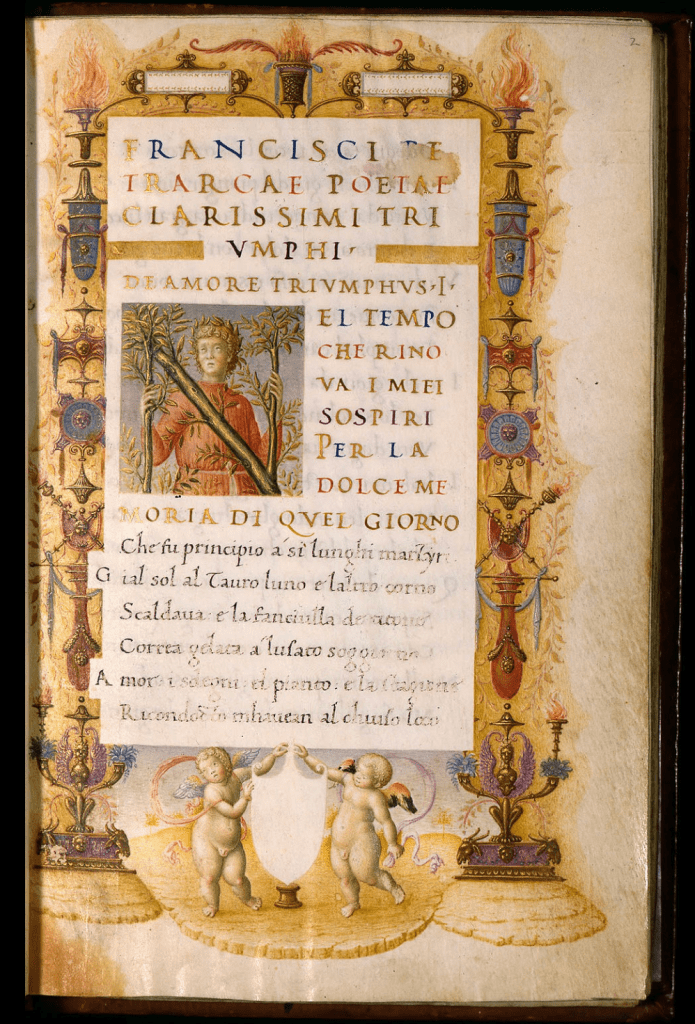 2
FRANCISCI PE
TRARCAE POETAE
CLARISSIMI TRI
VMPHI·
DE AMORE TRIVMPHVS·I·
NEL TEMPO
CHE RINO
VA I MIEI
SOSPIRI
PER LA
DOLCE ME
MORIA DI QVEL GIORNO
Che fu principio a si lunghi martyri
Gia il sol al Tauro luno e laltro corno
Scaldaua· e la fanciulla de
Correa gelata al usato soggiorno
Amor· i sdegni· el pianto· e la stagione
Ricondotto mhauean al chiuso loco